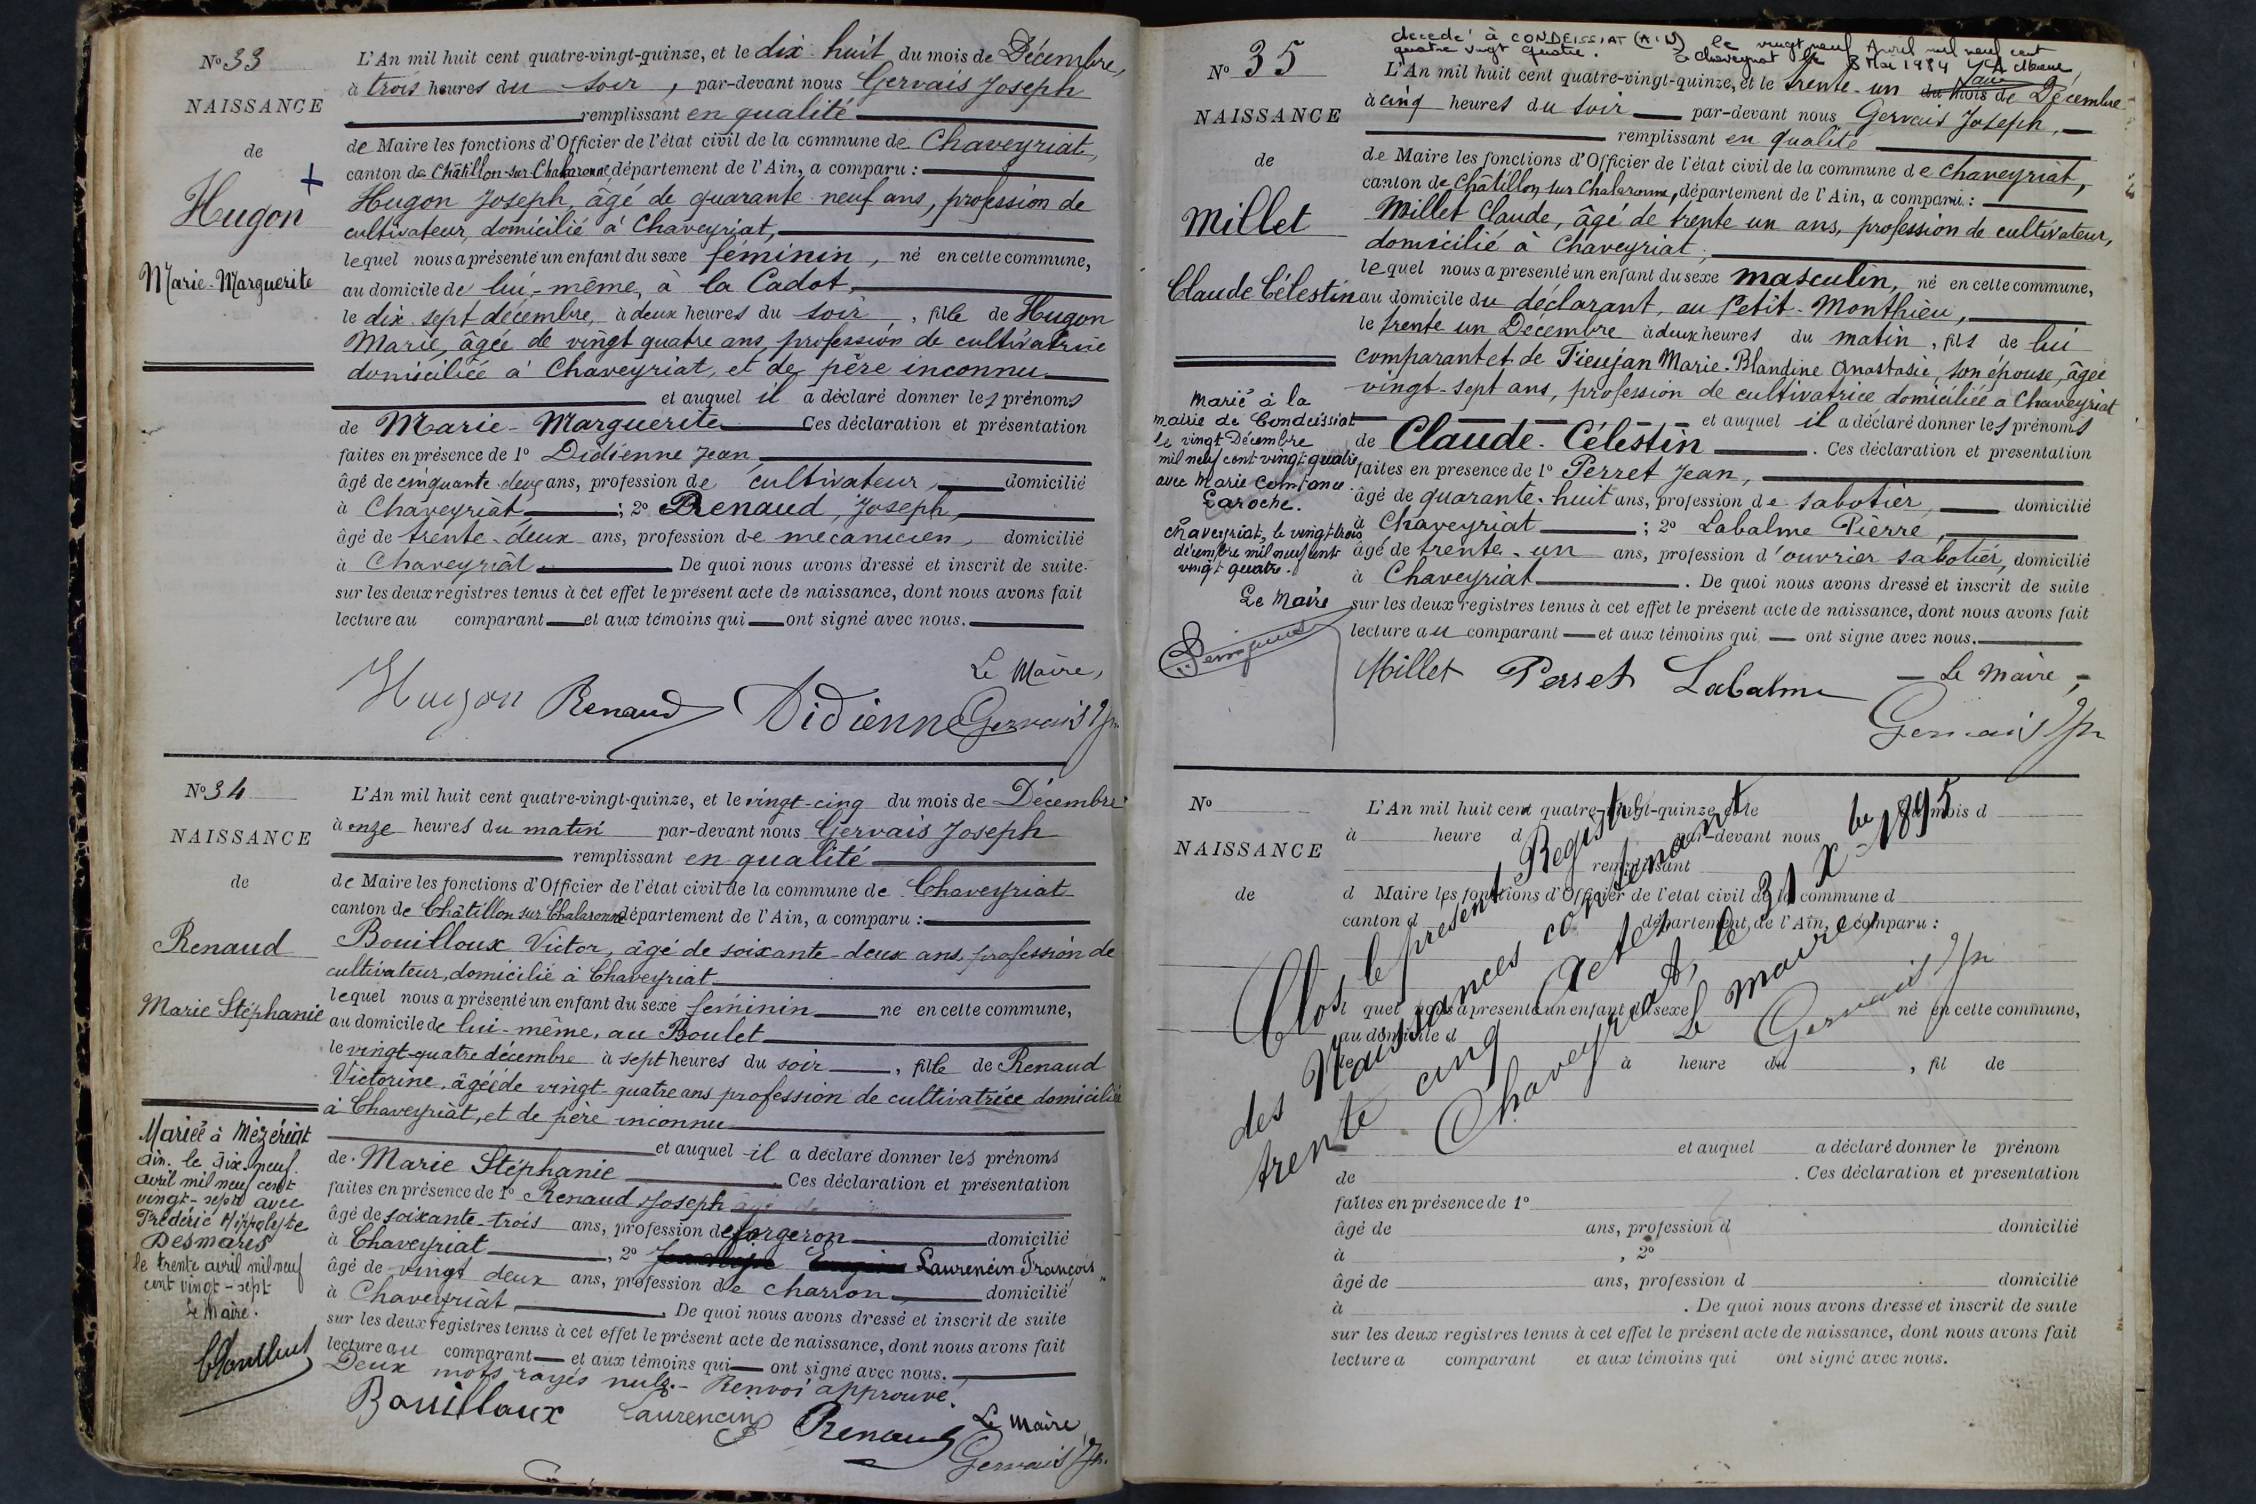 No 33
NAISSANCE
de
Hugon
Marie-Marguerite
L'An mil huit cent quatre-vingt-quinze, et le dix huit du mois de Décembre,
à trois heures du soir, par-devant nous Gervais Joseph
remplissant en qualité
de Maire les fonctions d'Officier de l'état civil de la commune de Chaveyriat,
canton de Châtillon-sur-Chalaronne, département de l'Ain, a comparu :
Hugon Joseph, âgé de quarante neuf ans, profession de
cultivateur, domicilié à Chaveyriat,
lequel nous a présenté un enfant du sexe féminin, né en cette commune,
au domicile de lui-même, à la Cadot,
le dix sept décembre, à deux heures du soir, fille de Hugon
Marie, âgée de vingt quatre ans, profession de cultivatrice
domiciliée à Chaveyriat, et de père inconnu
et auquel il a déclaré donner les prénoms
de Marie-Marguerite Ces déclaration et présentation
faites en présence de 1° Didienne Jean,
âgé de cinquante deux ans, profession de cultivateur, domicilié
à Chaveyriat ; 2° Renaud, Joseph,
âgé de trente-deux ans, profession de mecanicien, domicilié
à Chaveyriat. De quoi nous avons dressé et inscrit de suite
sur les deux registres tenus à cet effet le présent acte de naissance, dont nous avons fait
lecture au comparant et aux témoins qui ont signé avec nous.
Le Maire,
Hugon Renaud Didienne Gervais Jph
No 34
NAISSANCE
de
Renaud
Marie Stéphanie
L'An mil huit cent quatre-vingt-quinze, et le vingt-cinq du mois de Décembre
à onze heures du matin par-devant nous Gervais Joseph
remplissant en qualité
de Maire les fonctions d'Officier de l'état civil de la commune de Chaveyriat
canton de Châtillon sur Chalaronne département de l'Ain, a comparu :
Bouilloux Victor, âgé de soixante-deux ans, profession de
cultivateur, domicilié à Chaveyriat
lequel nous a présenté un enfant du sexe féminin né en cette commune,
au domicile de lui-même, au Boulet
le vingt-quatre décembre à sept heures du soir, fille de Renaud
Victorine, âgée de vingt-quatre ans profession de cultivatrice domiciliée
à Chaveyriat, et de père inconnu
et auquel il a déclaré donner les prénoms
de Marie Stéphanie Ces déclaration et présentation
faites en présence de 1° Renaud Joseph
âgé de soixante-trois ans, profession de forgeron domicilié
à Chaveyriat, 2° Laurencin François
âgé de vingt deux ans, profession de charron, domicilié
à Chaveyriat. De quoi nous avons dressé et inscrit de suite
sur les deux registres tenus à cet effet le présent acte de naissance, dont nous avons fait
lecture au comparant et aux témoins qui ont signé avec nous.
Deux mots rayés nuls.- Renvoi approuvé.
Le Maire
Bouilloux Laurencin Renaud Gervais Jph.
Mariée à Mézériat
Ain. le dix-neuf
avril mil neuf cent
vingt-sept avec
Frédéric Hippolyte
Desmaris
le trente avril mil neuf
cent vingt-sept
Le Maire.
No 35
NAISSANCE
de
Millet
Claude Célestin
décédé à CONDEISSIAT (AIN) le vingt neuf Avril mil neuf cent
quatre vingt quatre. à Chaveyriat le 3 Mai 1984
L'An mil huit cent quatre-vingt-quinze, et le trente-un du mois de Décembre
à cinq heures du soir par-devant nous Gervais Joseph,
remplissant en qualité
de Maire les fonctions d'Officier de l'état civil de la commune de Chaveyriat,
canton de Châtillon sur Chalaronne, département de l'Ain, a comparu :
Millet Claude, âgé de trente un ans, profession de cultivateur,
domicilié à Chaveyriat,
lequel nous a présenté un enfant du sexe masculin, né en cette commune,
au domicile du déclarant, au Petit-Monthieu,
le trente un Décembre à deux heures du matin, fils de lui
comparant et de Fieujan Marie-Blandine Anastasie, son épouse, âgée
vingt-sept ans, profession de cultivatrice domiciliée à Chaveyriat
et auquel il a déclaré donner les prénoms
de Claude-Célestin. Ces déclaration et présentation
faites en présence de 1° Perret Jean,
âgé de quarante-huit ans, profession de sabotier, domicilié
à Chaveyriat ; 2° Labalme Pierre,
âgé de trente-un ans, profession d'ouvrier sabotier, domicilié
à Chaveyriat. De quoi nous avons dressé et inscrit de suite
sur les deux registres tenus à cet effet le présent acte de naissance, dont nous avons fait
lecture au comparant et aux témoins qui ont signé avec nous.
Millet Perret Labalme Le Maire,
Gervais Jph
Marié à la
mairie de Condeissiat
le vingt Décembre
mil neuf cent vingt-quatre
avec Marie Constance
Laroche.
Chaveyriat, le vingt-trois
décembre mil neuf cent
vingt quatre.
Le Maire
No
NAISSANCE
de
L'An mil huit cent quatre-vingt-quinze, et le du mois d
à heure d par-devant nous
remplissant
d Maire les fonctions d'Officier de l'état civil de la commune d
canton d département de l'Ain, a comparu :
lequel nous a présenté un enfant du sexe né en cette commune,
au domicile d
le à heure du , fil de
et auquel a déclaré donner le prénom
de . Ces déclaration et présentation
faites en présence de 1°
âgé de ans, profession d domicilié
à , 2°
âgé de ans, profession d domicilié
à . De quoi nous avons dressé et inscrit de suite
sur les deux registres tenus à cet effet le présent acte de naissance, dont nous avons fait
lecture a comparant et aux témoins qui ont signé avec nous.
Clos le présent Registre
des Naissances contenant
trente cinq Actes
Chaveyriat, le 31 Xbre 1895
Le maire,
Gervais Jph